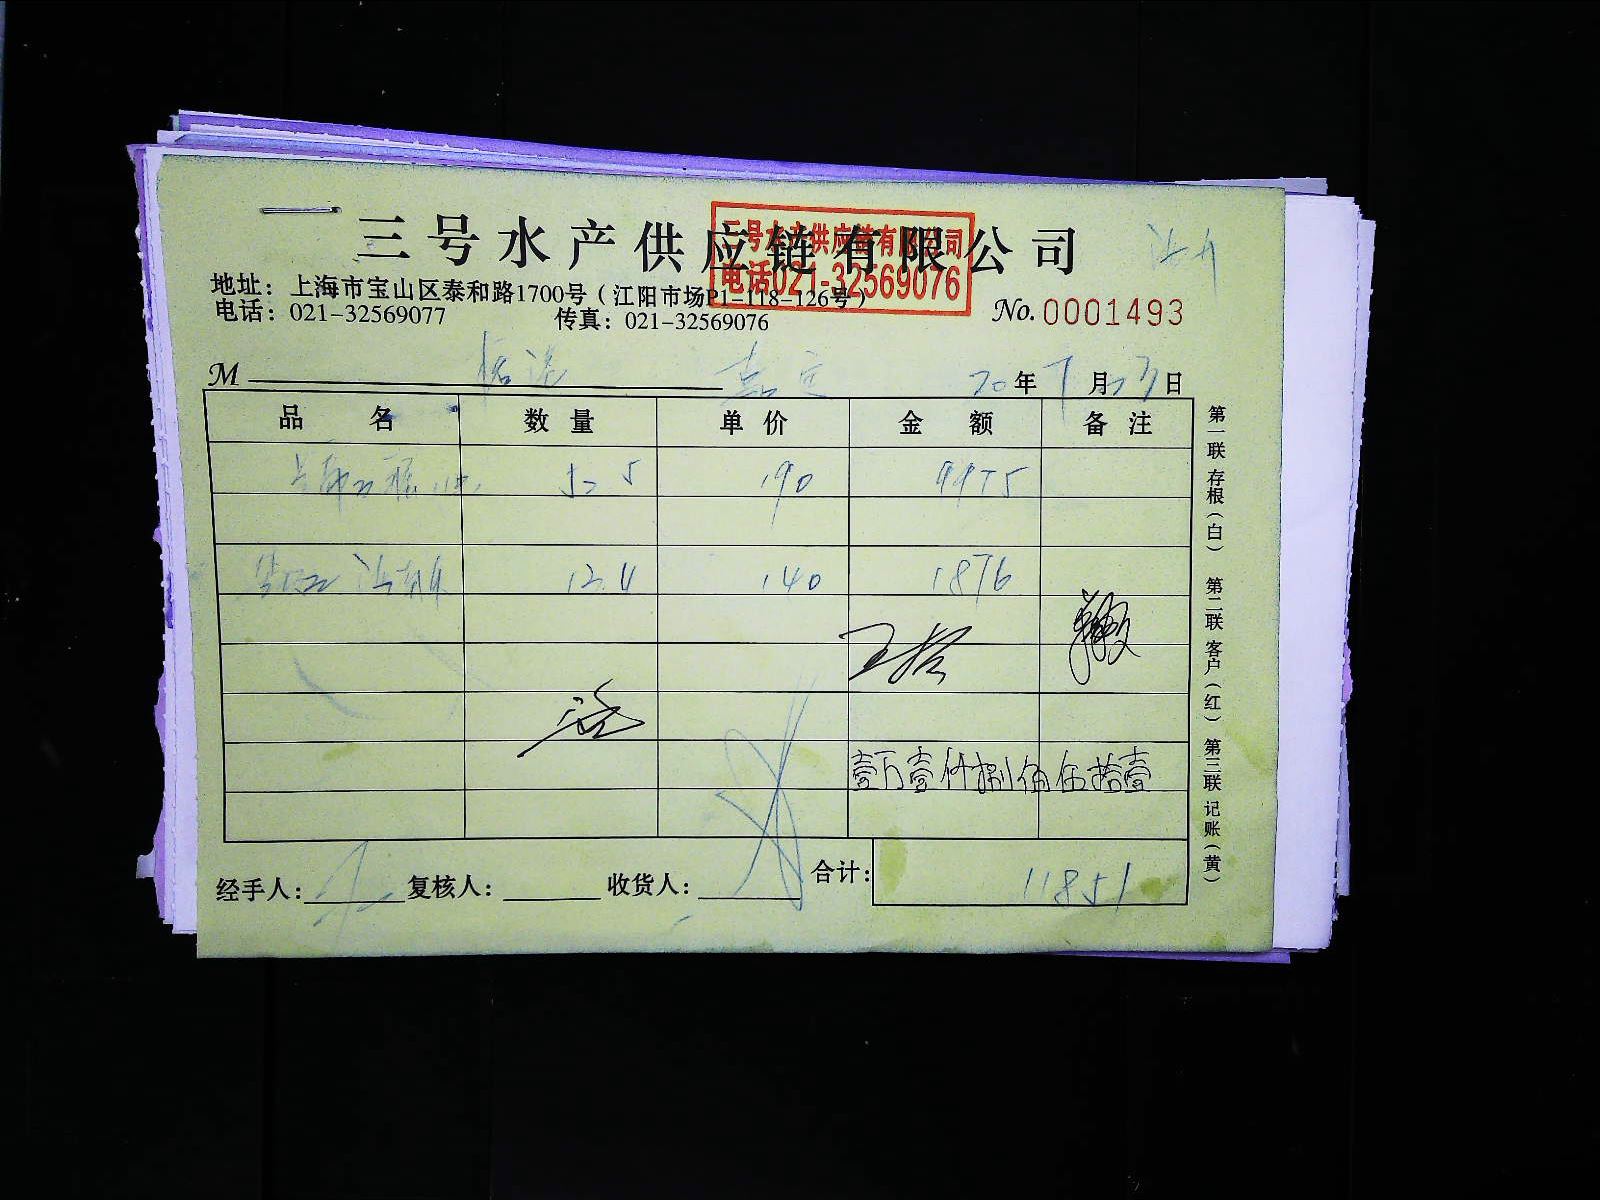 三号水产供应链有限公司
三号水产供应链有限公司
电话021-32569076
地址：上海市宝山区泰和路1700号（江阳市场P1-118-126号）
电话：021-32569077 传真：021-32569076
No.0001493
M 嘉定 20年7月23日
品名 数量 单价 金额 备注
52.5 190 9975
13.4 140 1876
壹万壹仟捌佰伍拾壹
经手人： 复核人： 收货人： 合计：11851
第一联 存根（白） 第二联 客户（红） 第三联 记账（黄）